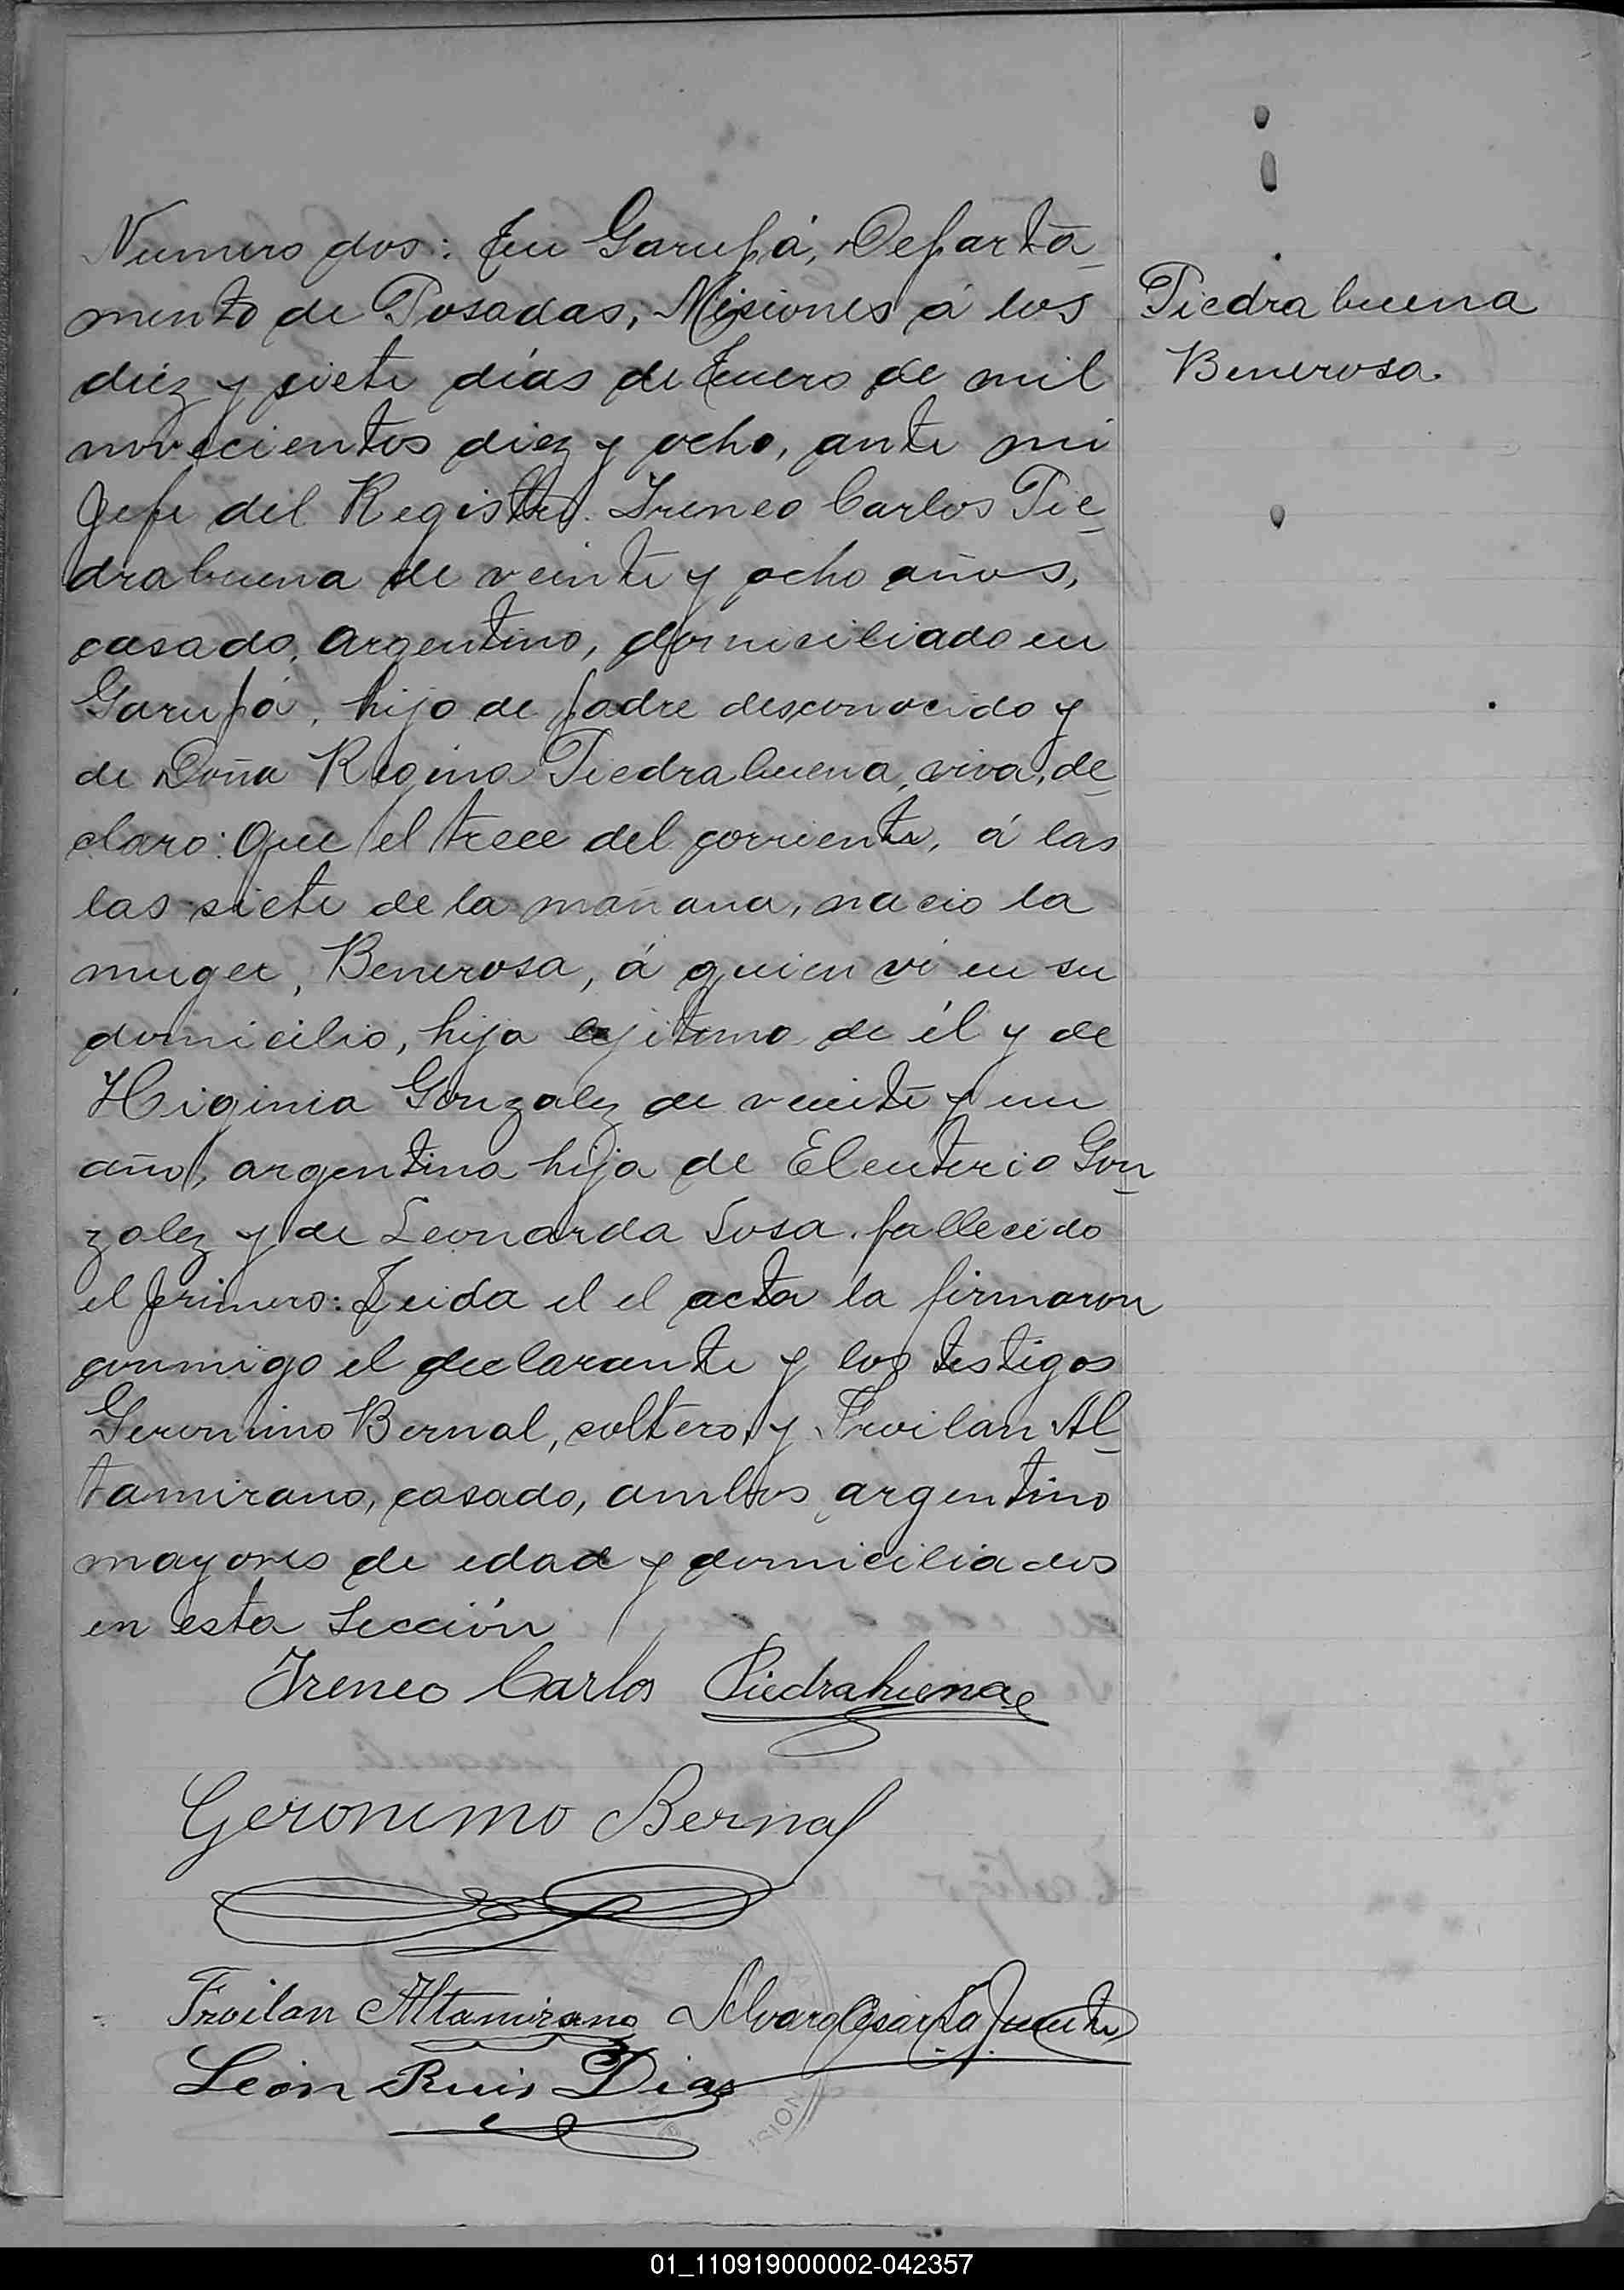 Numero dos: En Garupá, Departa-
mento de Posadas, Misiones á los
diez y siete días de Enero de mil
novecientos diez y ocho, ante mi
Jefe del Registro. Ireneo Carlos Pie-
drabuena de veinte y ocho años,
casado, argentino, domiciliado en
Garupá, hijo de padre desconocido y
de Doña Regina Piedrabuena, viva, de-
claro: Que el trece del corriente, á las
las siete de la mañana, nacio la
muger, Benerosa, á quien vi en su
domicilio, hija lejitima de él y de
Higinia Gonzalez de veinte y un
año, argentina hija de Eleuterio Gon-
zalez y de Leonarda Sosa. fallecido
el primero: Leida el el acta la firmaron
conmigo el declarante y los testigos
Geronimo Bernal, soltero, y Froilan Al-
tamirano, casado, ambos argentino
mayores de edad y domiciliados
en esta Sección
Piedrabuena
Benerosa.
Ireneo Carlos Piedrabuena
Geronimo Bernal
Froilan Altamirano Alvaro
León Ruis Dias
01_110919000002-042357